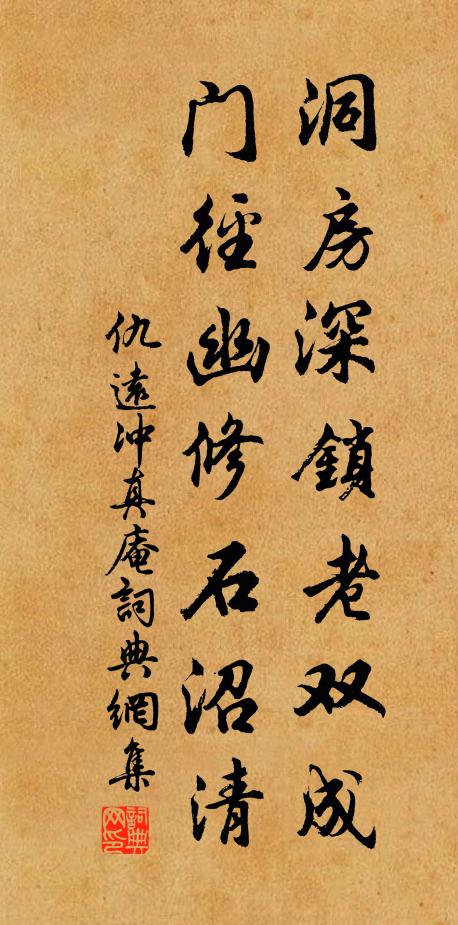 洞房深鎖老双成
门径幽修石沼清
仇遠冲真庵詞典網集
詞典网印